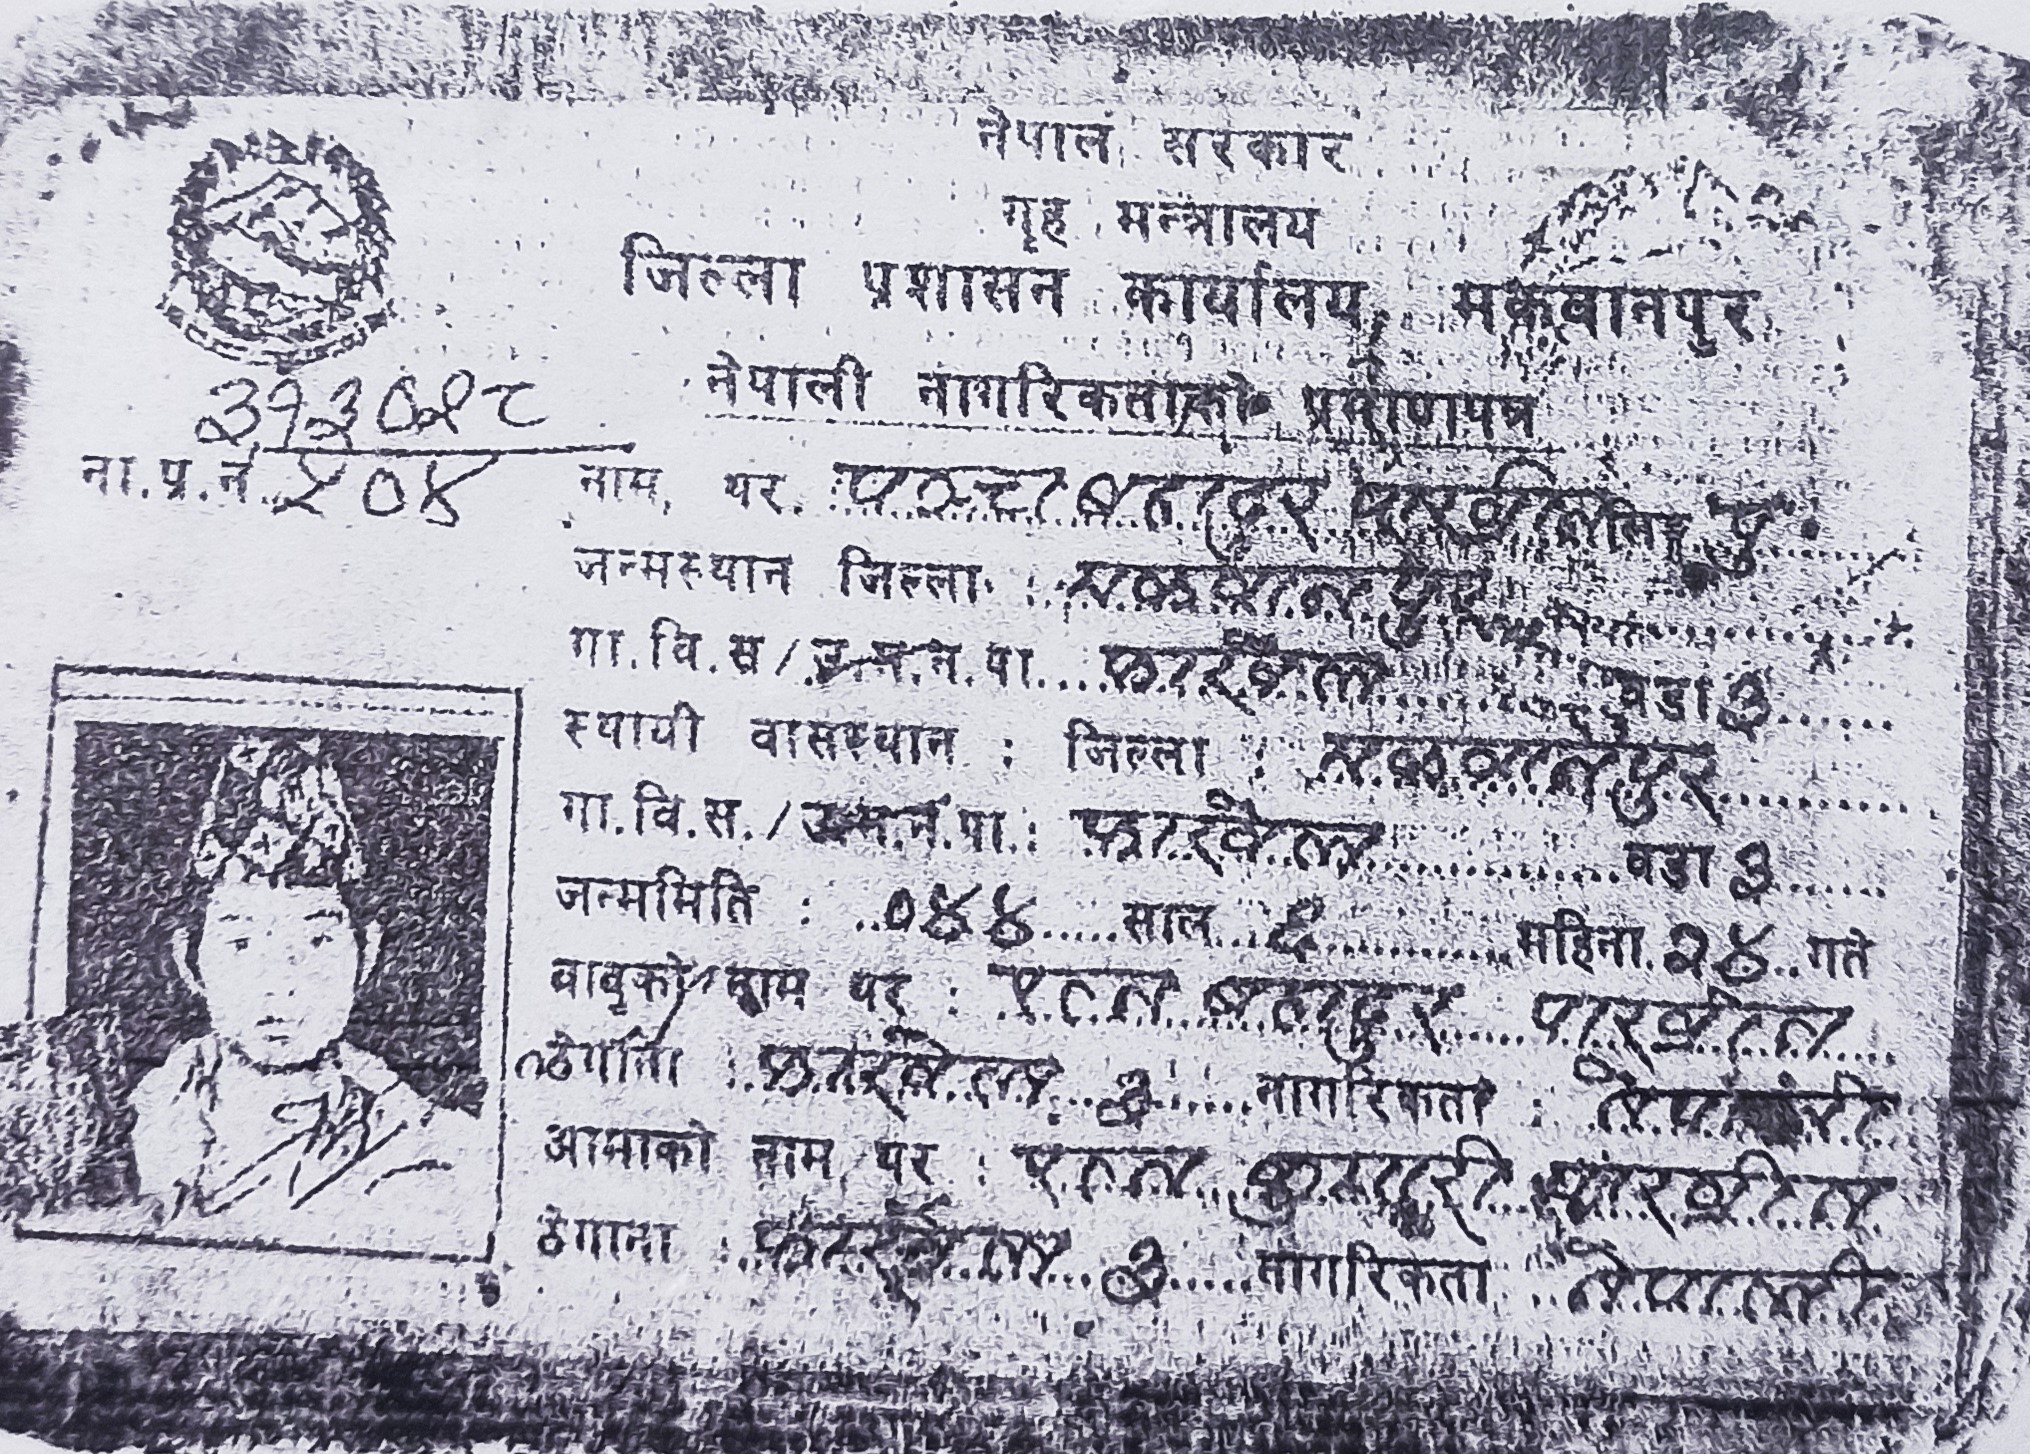 नेपाल सरकार
गृह मन्त्रालय
जिल्ला प्रशासन कार्यालय, मकवानपुर
नेपाली नागरिकताको प्रमाणपत्र
ना.प्र.नं. ५०४
नाम, थर : बहादुर लिङ्ग पु.
जन्मस्थान जिल्ला : मकवानपुर
गा.वि.स/उ.म.न.पा. फाखेल वडा ३
स्थायी वासस्थान : जिल्ला : मकवानपुर
गा.वि.स./उ.म.न.पा.: फाखेल वडा ३
जन्ममिति : ०४४ साल ६ महिना २४ गते
बाबुको नाम थर : बहादुर
ठेगाना : फाखेल ३ नागरिकता : नेपाली
आमाको नाम थर :
ठेगाना : फाखेल ३ नागरिकता नेपाली